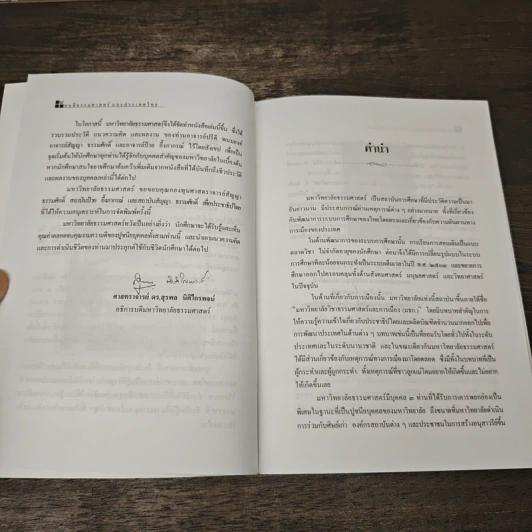 คนดีธรรมศาสตร์ และประเทศไทย
ในโอกาสนี้ มหาวิทยาลัยธรรมศาสตร์จึงได้จัดทำหนังสือเล่มนี้ขึ้น ซึ่งได้
รวบรวมประวัติ แนวความคิด และผลงาน ของท่านอาจารย์ปรีดี พนมยงค์
อาจารย์สัญญา ธรรมศักดิ์ และอาจารย์ป๋วย อึ๊งภากรณ์ ไว้โดยสังเขป เพื่อเป็น
จุดเริ่มต้นให้นักศึกษาทุกท่านได้รู้จักกับบุคคลสำคัญของมหาวิทยาลัยในเบื้องต้น
หากนักศึกษาสนใจอาจศึกษาค้นคว้าเพิ่มเติมจากหนังสือที่ได้บันทึกถึงชีวประวัติ
และผลงานของบุคคลเหล่านี้ได้ต่อไป
มหาวิทยาลัยธรรมศาสตร์ ขอขอบคุณกองทุนศาสตราจารย์สัญญา
ธรรมศักดิ์ สถาบันป๋วย อึ๊งภากรณ์ และสถาบันสัญญา ธรรมศักดิ์ เพื่อประชาธิปไตย
ที่ได้ให้ความอนุเคราะห์ในการจัดพิมพ์ครั้งนี้
มหาวิทยาลัยธรรมศาสตร์หวังเป็นอย่างยิ่งว่า นักศึกษาจะได้รับรู้และเห็น
คุณค่าตลอดจนคุณงามความดีของปูชนียบุคคลทั้งสามท่านนี้ และนำเอาแนวความคิด
และการดำเนินชีวิตของท่านมาประยุกต์ใช้กับชีวิตนักศึกษาได้ต่อไป
ศาสตราจารย์ ดร.สุรพล นิติไกรพจน์
อธิการบดีมหาวิทยาลัยธรรมศาสตร์
คำนำ
มหาวิทยาลัยธรรมศาสตร์ เป็นสถาบันการศึกษาที่มีประวัติความเป็นมา
อันยาวนาน มีประสบการณ์ผ่านเหตุการณ์ต่าง ๆ อย่างมากมาย ทั้งที่เกี่ยวข้อง
กับพัฒนาการระบบการศึกษาของไทยโดยตรงและเกี่ยวข้องกับความผันผวนทาง
การเมืองของประเทศ
ในด้านพัฒนาการของระบบการศึกษานั้น การเรียนการสอนเดิมเป็นแบบ
ตลาดวิชา ไม่จำกัดอายุของนักศึกษา ต่อมาจึงได้มีการเปลี่ยนรูปแบบในระบบ
การศึกษาทีละน้อยจนกระทั่งเป็นระบบเดิมมาใน พ.ศ. และขยายการ
ศึกษาออกไปครอบคลุมทั้งด้านสังคมศาสตร์ มนุษยศาสตร์ และวิทยาศาสตร์
ในปัจจุบัน
ในด้านที่เกี่ยวกับการเมืองนั้น มหาวิทยาลัยแห่งนี้สถาปนาขึ้นภายใต้ชื่อ
"มหาวิทยาลัยวิชาธรรมศาสตร์และการเมือง (มธก.)" โดยมีบทบาทสำคัญในการ
ให้ความรู้ความเข้าใจเกี่ยวกับประชาธิปไตยและผลิตบัณฑิตจำนวนมากออกไปเพื่อ
การพัฒนาประเทศในด้านต่าง ๆ บทบาทเช่นนี้เป็นที่ยอมรับโดยทั่วไปทั้งในระดับ
ประเทศและในระดับนานาชาติ และในขณะเดียวกันมหาวิทยาลัยธรรมศาสตร์
ได้มีส่วนเกี่ยวข้องกับเหตุการณ์ทางการเมืองมาโดยตลอด ซึ่งมีทั้งในบทบาทที่เป็น
ผู้กระทำและผู้ถูกกระทำ ทั้งเหตุการณ์ที่ชาวลูกแม่โดมอยากให้เกิดขึ้นและไม่อยาก
ให้เกิดขึ้นเลย
มหาวิทยาลัยธรรมศาสตร์มีบุคคล ๓ ท่านที่ได้รับการเคารพยกย่องเป็น
พิเศษในฐานะที่เป็นปูชนียบุคคลของมหาวิทยาลัย ถึงขนาดที่มหาวิทยาลัยดำเนิน
การร่วมกับศิษย์เก่า องค์กรสถาบันต่าง ๆ และประชาชนในการสร้างอนุสาวรีย์ขึ้น